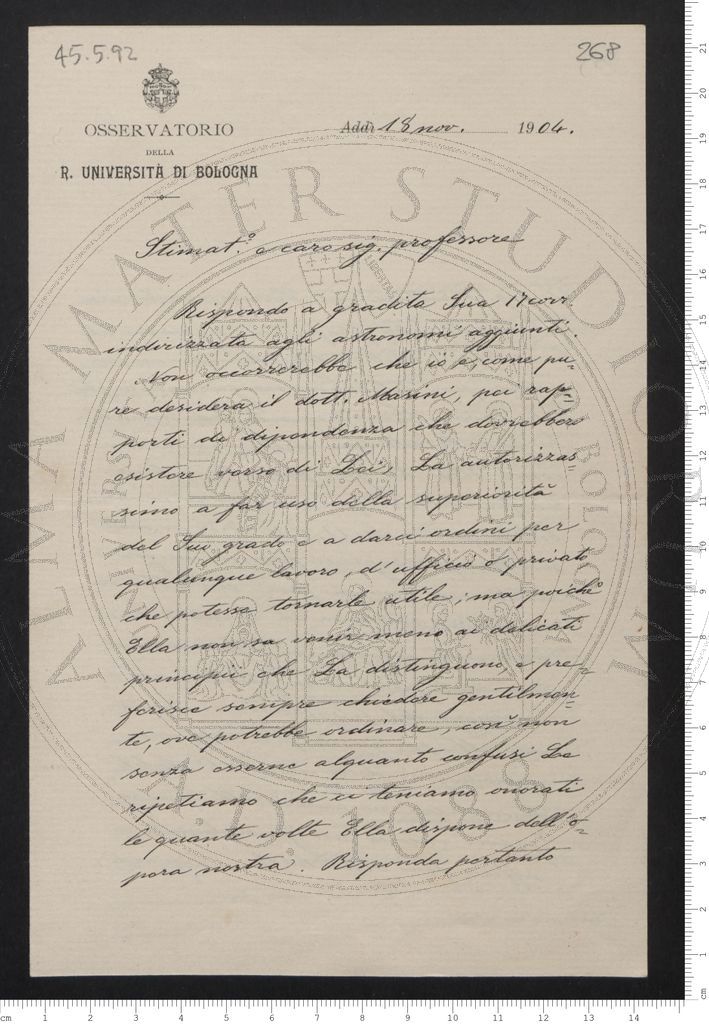 45.5.92
268
OSSERVATORIO
DELLA
R. UNIVERSITÀ DI BOLOGNA
Addì 18 nov. 1904.
Stimat.º e caro sig. professore
Rispondo a gradita Sua 17 corr.
indirizzata agli astronomi aggiunti.
Non occorrerebbe che io e, come pu-
re desidera il dott. Masini, pei rap-
porti di dipendenza che dovrebbero
esistere verso di Lei, La autorizzas=
simo a far uso della superiorità
del Suo grado e a darci ordini per
qualunque lavoro, d'ufficio o privato
che potesse tornarle utile; ma poichè
Ella non sa venir meno ai delicati
principii che La distinguono, e pre=
ferisce sempre chiedere gentilmen=
te, ove potrebbe ordinare, così non
senza esserne alquanto confusi Le
ripetiamo che ci teniamo onorati
le quante volte Ella dispone dell'o=
pera nostra. Risponda pertanto
ALMA MATER STUDIORUM
A.D. 1088
LIBERTAS
cm 1 2 3 4 5 6 7 8 9 10 11 12 13 14
21
20
19
18
17
16
15
14
13
12
11
10
9
8
7
6
5
4
3
2
1
cm